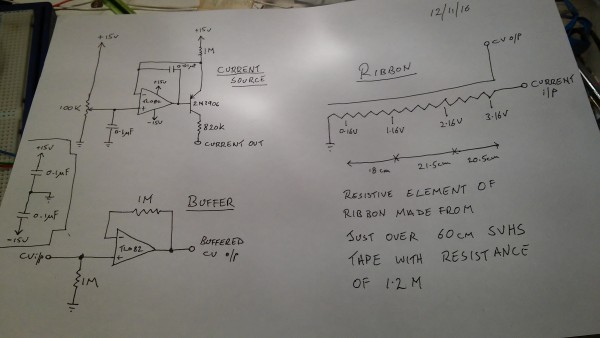 12/11/16
+15V
+15V
1M
0.01µF
CURRENT
SOURCE
+15V
100K
TL082
2N3906
-15V
0.1µF
820K
CURRENT OUT
+15V
0.1µF
0.1µF
-15V
BUFFER
1M
TL082
BUFFERED
CV O/P
CV i/p
1M
CV O/P
RIBBON
CURRENT
I/P
0.16V
1.16V
2.16V
3.16V
18cm
21.5cm
20.5cm
RESISTIVE ELEMENT OF
RIBBON MADE FROM
JUST OVER 60CM SVHS
TAPE WITH RESISTANCE
OF 1.2 M